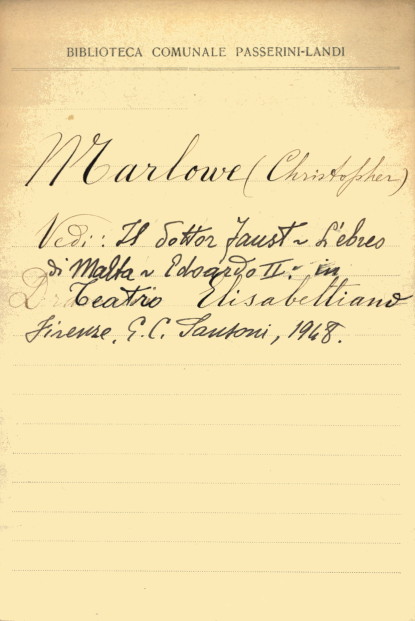 BIBLIOTECA COMUNALE PASSERINI-LANDI
Marlowe (Christopher)
Vedi: Il dottor Faust ~ L'ebreo
di Malta ~ Edoardo II. ~ in
Teatro Elisabettiano
Firenze, G.C. Sansoni, 1948.